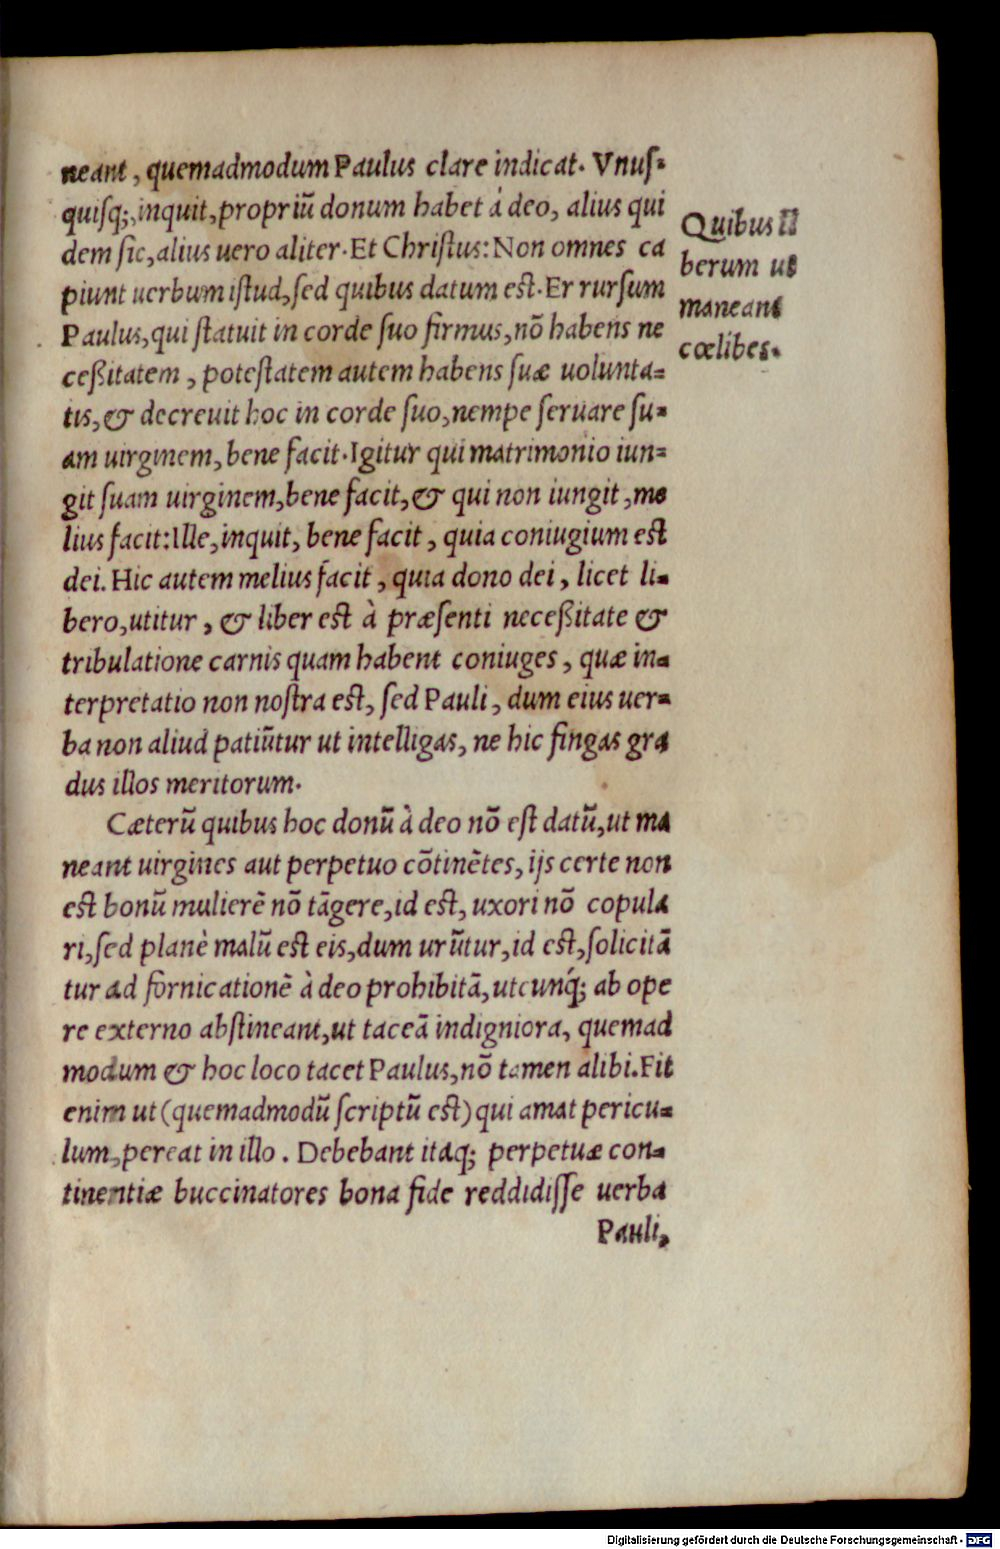 neant, quemadmodum Paulus clare indicat. Vnuſ-
quiſq;, inquit, propriũ donum habet á deo, alius qui
dem ſic, alius uero aliter. Et Chriſtus: Non omnes ca
piunt uerbum iſtud, ſed quibus datum eſt. Er rurſum
Paulus, qui ſtatuit in corde ſuo firmus, nõ habens ne
ceßitatem, poteſtatem autem habens ſuæ uolunta-
tis, & decreuit hoc in corde ſuo, nempe ſeruare ſu-
am uirginem, bene facit. Igitur qui matrimonio iun-
git ſuam uirginem, bene facit, & qui non iungit, me
lius facit: Ille, inquit, bene facit, quia coniugium eſt
dei. Hic autem melius facit, quia dono dei, licet li-
bero, utitur, & liber est à præſenti neceßitate &
tribulatione carnis quam habent coniuges, quæ in-
terpretatio non noſtra eſt, ſed Pauli, dum eius uer-
ba non aliud patiũtur ut intelligas, ne hic fingas gra
dus illos meritorum.
Cæterũ quibus hoc donũ à deo nõ eſt datũ, ut ma
neant uirgines aut perpetuo cõtinẽtes, ijs certe non
eſt bonũ mulierẽ nõ tãgere, id eſt, uxori nõ copula
ri, ſed planè malũ eſt eis, dum urũtur, id eſt, ſolicitã
tur ad fornicationẽ à deo prohibitã, utcunq́; ab ope
re externo abſtineant, ut taceã indigniora, quemad
modum & hoc loco tacet Paulus, nõ tamen alibi. Fit
enim ut (quemadmodũ ſcriptũ eſt) qui amat pericu-
lum, pereat in illo. Debebant itaq; perpetuæ con-
tinentiæ buccinatores bona fide reddidiſſe uerba
Pauli,
Quibus li
berum ut
maneant
cœlibes.
Digitalisierung gefördert durch die Deutsche Forschungsgemeinschaft - DFG